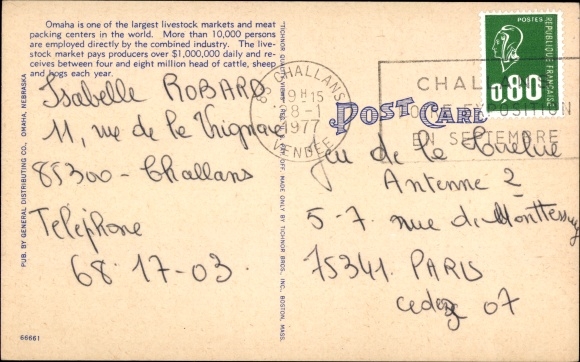 Omaha is one of the largest livestock markets and meat
packing centers in the world. More than 10,000 persons
are employed directly by the combined industry. The live-
stock market pays producers over $1,000,000 daily and re-
ceives between four and eight million head of cattle, sheep
and hogs each year.
Isabelle ROBARD
11, rue de la Vignaie
85300 - Challans
Téléphone
68-17-03.
66661
PUB. BY GENERAL DISTRIBUTING CO., OMAHA, NEBRASKA
MADE ONLY BY TICHNOR BROS., INC., BOSTON, MASS.
POST CARD
85 CHALLANS
19H15
28-1
1977
VENDEE
CHAL
EXPOSITION
EN SEPTEMBRE
POSTES
REPUBLIQUE FRANÇAISE
0.80
Jeu de la
Antenne 2
5-7. rue de Monttessuy
75341. PARIS
cedex 07